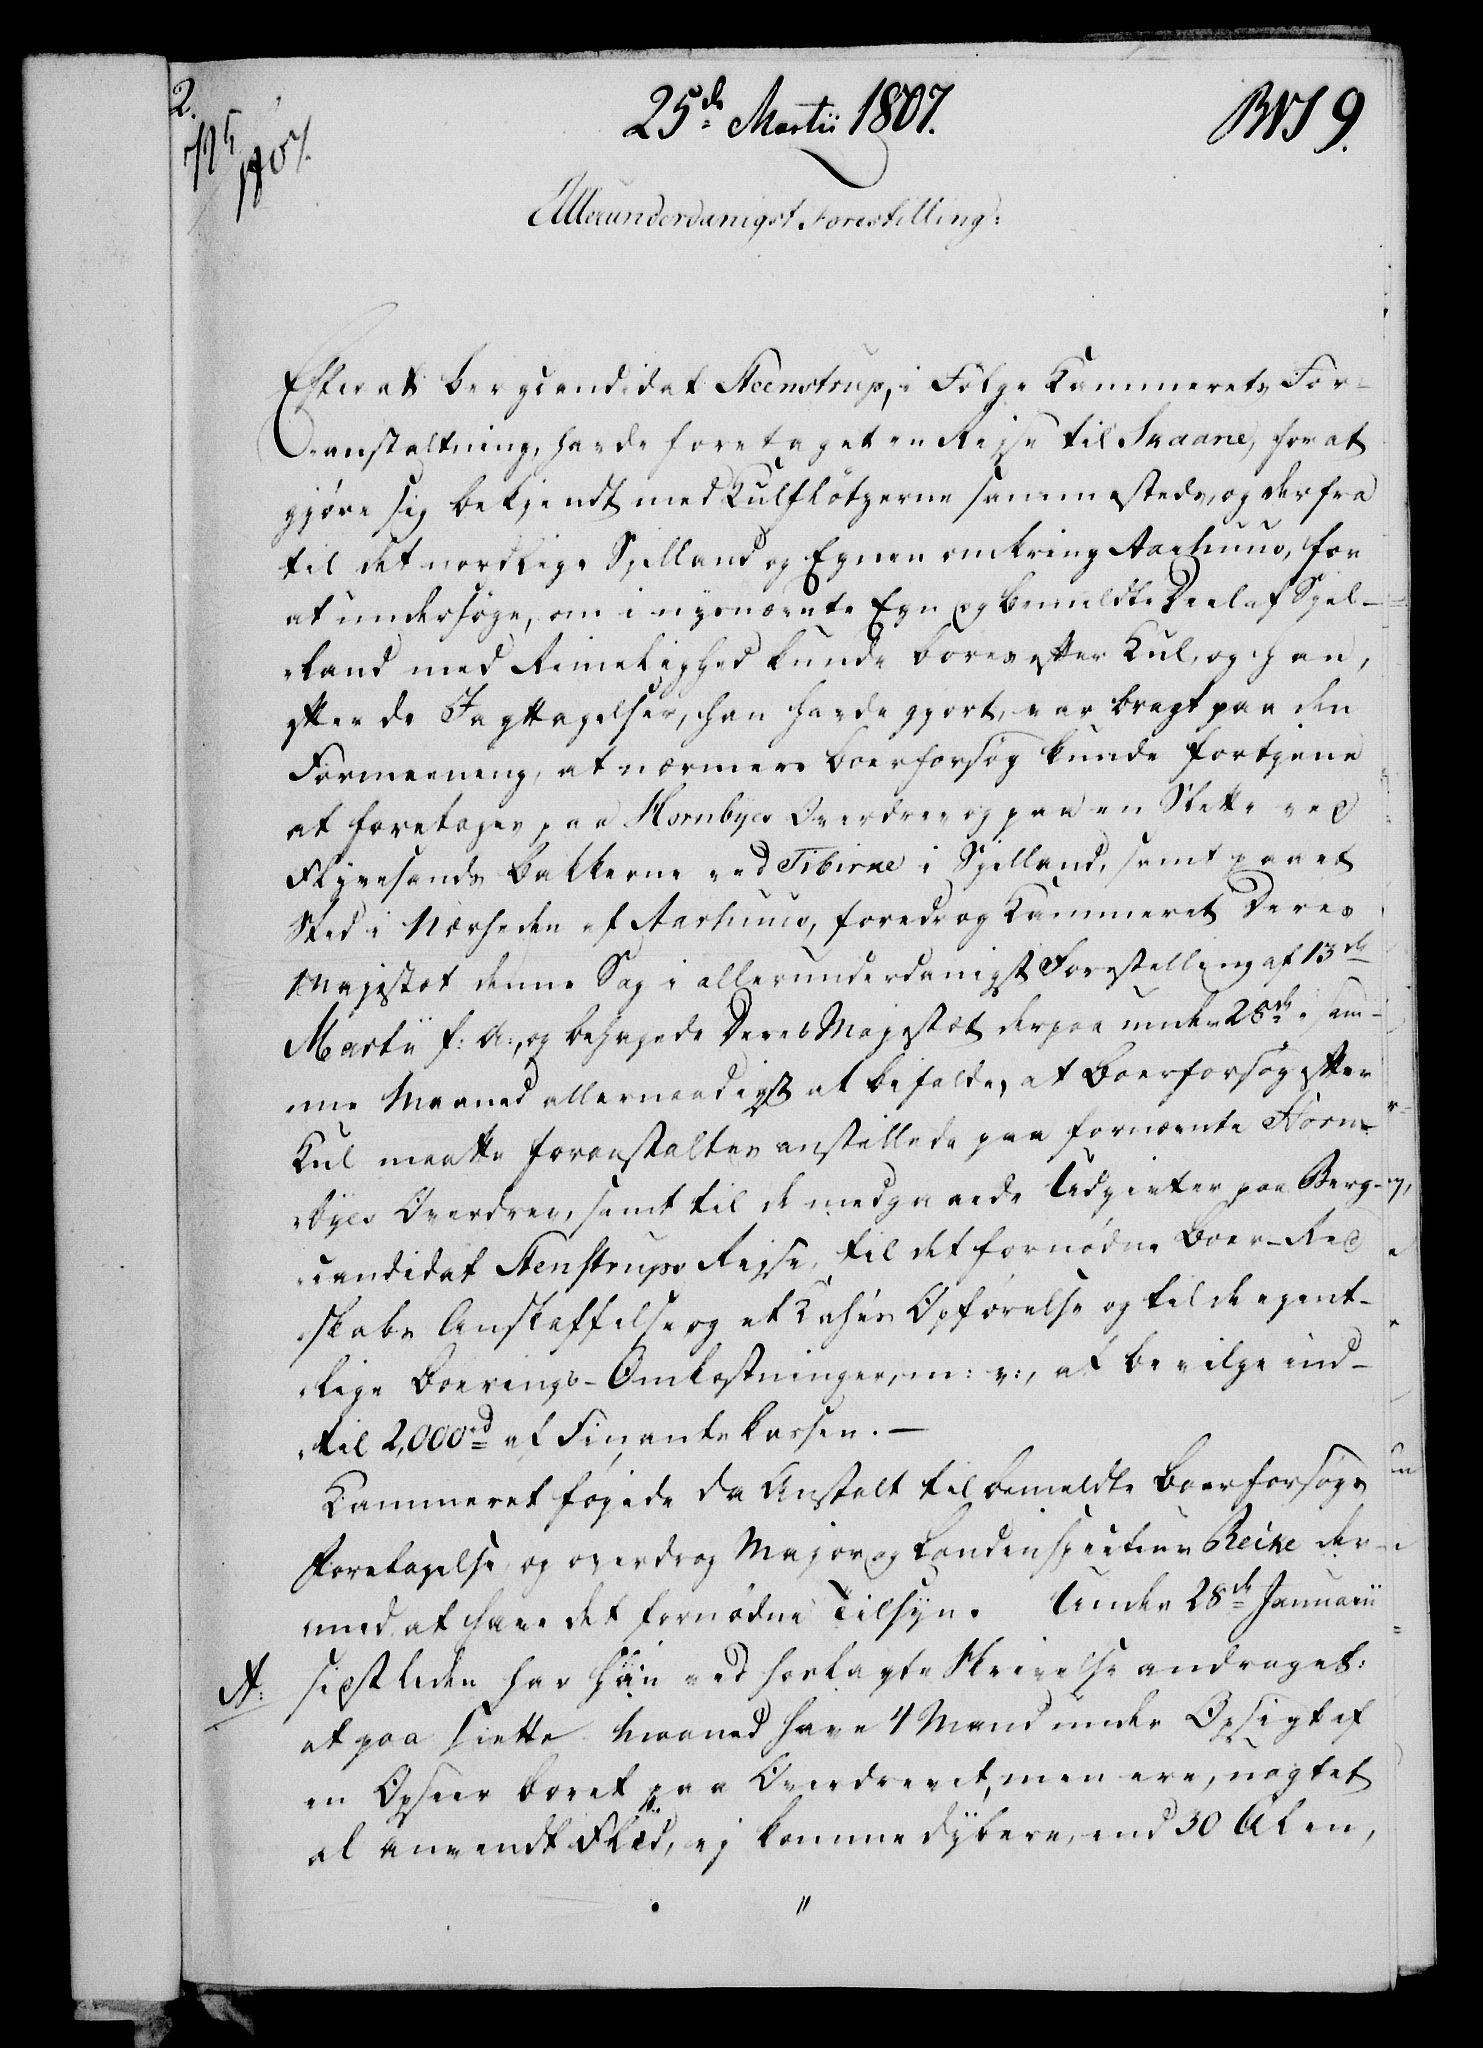 2.
25de Martii 1807.
No 9.
1807.
Allerunderdanigst Forestilling:
Efterat Bergcandidat Steenstrup, i Følge Kammerets For-
anstaltning, havde foretaget en Rejse til Skaane, for at
gjøre sig bekjendt med Kulflötzerne sammesteds, og derfra
til det nordlige Sjelland og Egnen omkring Aarhuus, for
at undersøge, om i nysnævnte Egn og bemeldte Deel af Sjel-
land med Rimelighed kunde bores efter Kul, og han,
efter de Iagttagelser, han havde gjort, var bragt paa den
Formeening, at nærmere Boerforsøg kunde fortjene
at foretages paa Hornbyes Overdrev og paa en Slette ved
Flyvesands Bakkerne ved Tibirke i Sjelland, samt paa et
Sted i Nærheden af Aarhuus, foredrog Kammeret Deres
Majestæt denne Sag i allerunderdanigst Forestilling af 13de
Martii f: A:, og behagede Deres Majestæt derpaa under 28de sam-
me Maaned allernaadigst at befale, at Boerforsøg efter
Kul maatte foranstaltes anstillede paa fornævnte Horn-
byes Overdrev, samt til de medgaaede Udgivter paa Berg-
candidat Steenstrups Rejse, til det fornødne Boer-Red-
skabs Anskaffelse og et Kuhes Opførelse og til de egent-
lige Boerings-Omkostninger, m: v:, at bevilge ind-
til 2,000rd af Finantskassen. —
Kammeret føjede da Anstalt til bemeldte Boerforsøgs
Foretagelse, og overdrog Major og Landinspecteur Beike der-
med at have det fornødne Tilsyn. Under 28de Januarii
A: sidstleden har han ved hoslagte Skrivelse andraget:
at paa siette Maaned have 4 Mand under Opsigt af
en Opseer boret paa Overdrevet, men ere, uagtet
al anvendt Fliid, ej komne dybere, end 30 Alen,